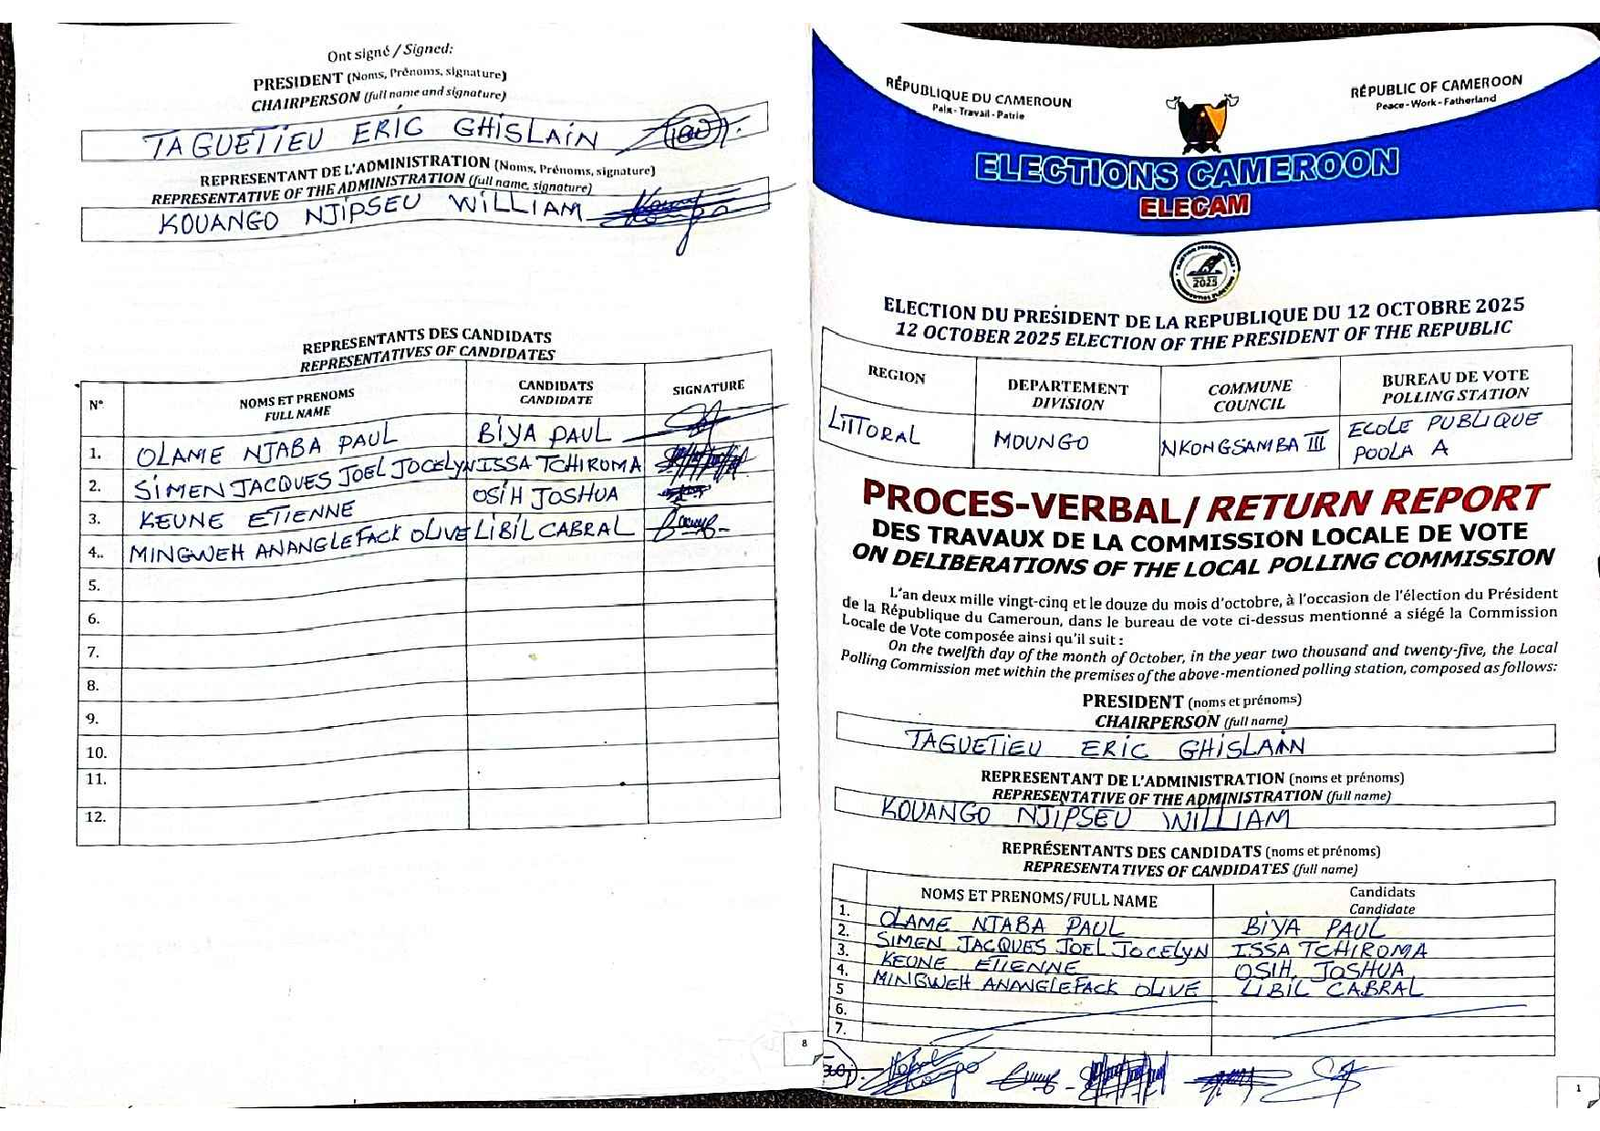 Ont signé / Signed:
PRESIDENT (Noms, Prénoms, signature)
CHAIRPERSON (full name and signature)
TAGUETIEU ERIC GHISLAIN
REPRESENTANT DE L'ADMINISTRATION (Noms, Prénoms, signature)
REPRESENTATIVE OF THE ADMINISTRATION (full name, signature)
KOUANGO NJIPSEU WILLIAM
REPRESENTANTS DES CANDIDATS
REPRESENTATIVES OF CANDIDATES
N° NOMS ET PRENOMS FULL NAME CANDIDATS CANDIDATE SIGNATURE
1. OLAME NJABA PAUL BIYA PAUL
2. SIMEN JACQUES JOEL JOCELYN ISSA TCHIROMA
3. KEUNE ETIENNE OSIH JOSHUA
4.. MINGWEH ANANGLEFACK OLIVE LIBIL CABRAL
5.
6.
7.
8.
9.
10.
11.
12.
8
RÉPUBLIQUE DU CAMEROUN
Paix - Travail - Patrie
RÉPUBLIC OF CAMEROON
Peace - Work - Fatherland
ELECTIONS CAMEROON
ELECAM
2025
ELECTION DU PRESIDENT DE LA REPUBLIQUE DU 12 OCTOBRE 2025
12 OCTOBER 2025 ELECTION OF THE PRESIDENT OF THE REPUBLIC
REGION DEPARTEMENT DIVISION COMMUNE COUNCIL BUREAU DE VOTE POLLING STATION
LITTORAL MOUNGO NKONGSAMBA III ECOLE PUBLIQUE POOLA A
PROCES-VERBAL/ RETURN REPORT
DES TRAVAUX DE LA COMMISSION LOCALE DE VOTE
ON DELIBERATIONS OF THE LOCAL POLLING COMMISSION
L'an deux mille vingt-cinq et le douze du mois d'octobre, à l'occasion de l'élection du Président
de la République du Cameroun, dans le bureau de vote ci-dessus mentionné a siégé la Commission
Locale de Vote composée ainsi qu'il suit :
On the twelfth day of the month of October, in the year two thousand and twenty-five, the Local
Polling Commission met within the premises of the above-mentioned polling station, composed as follows:
PRESIDENT (noms et prénoms)
CHAIRPERSON (full name)
TAGUETIEU ERIC GHISLAIN
REPRESENTANT DE L'ADMINISTRATION (noms et prénoms)
REPRESENTATIVE OF THE ADMINISTRATION (full name)
KOUANGO NJIPSEU WILLIAM
REPRÉSENTANTS DES CANDIDATS (noms et prénoms)
REPRESENTATIVES OF CANDIDATES (full name)
NOMS ET PRENOMS/FULL NAME Candidats Candidate
1. OLAME NJABA PAUL BIYA PAUL
2. SIMEN JACQUES JOEL JOCELYN ISSA TCHIROMA
3. KEUNE ETIENNE OSIH JOSHUA
4. MINGWEH ANANGLEFACK OLIVE LIBIL CABRAL
5
6.
7.
1